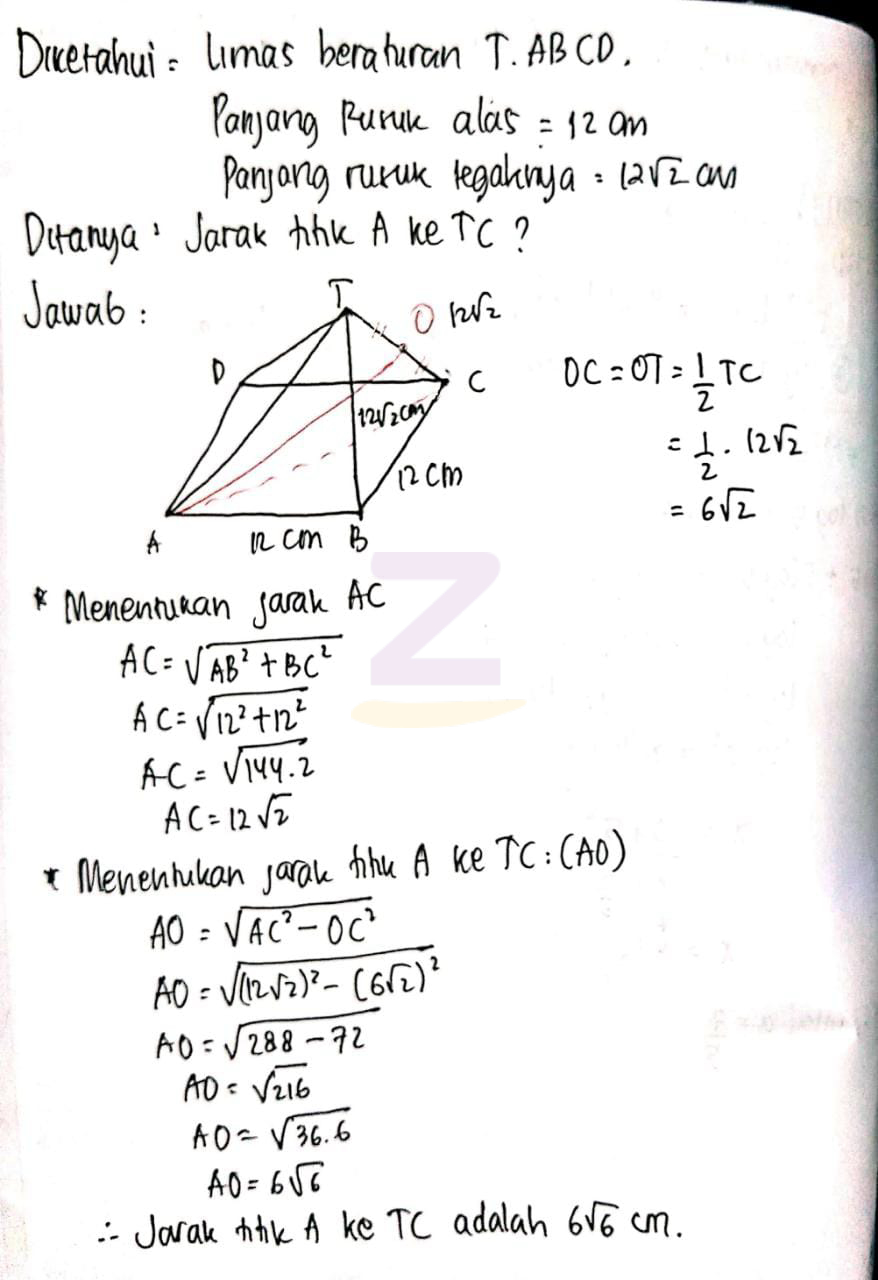 Diketahui = limas beraturan T.ABCD.
Panjang Rusuk alas = 12 cm
Panjang rusuk tegaknya = 12√2 cm
Ditanya : Jarak titik A ke TC ?
Jawab :
T
O 12√2
D
C
12√2 cm
12 cm
A 12 cm B
OC = OT = 1/2 TC
= 1/2 . 12√2
= 6√2
* Menentukan jarak AC
AC = √AB² + BC²
AC = √12² + 12²
AC = √144.2
AC = 12√2
* Menentukan jarak titik A ke TC : (AO)
AO = √AC² - OC²
AO = √(12√2)² - (6√2)²
AO = √288 - 72
AO = √216
AO = √36.6
AO = 6√6
∴ Jarak titik A ke TC adalah 6√6 cm.
Z